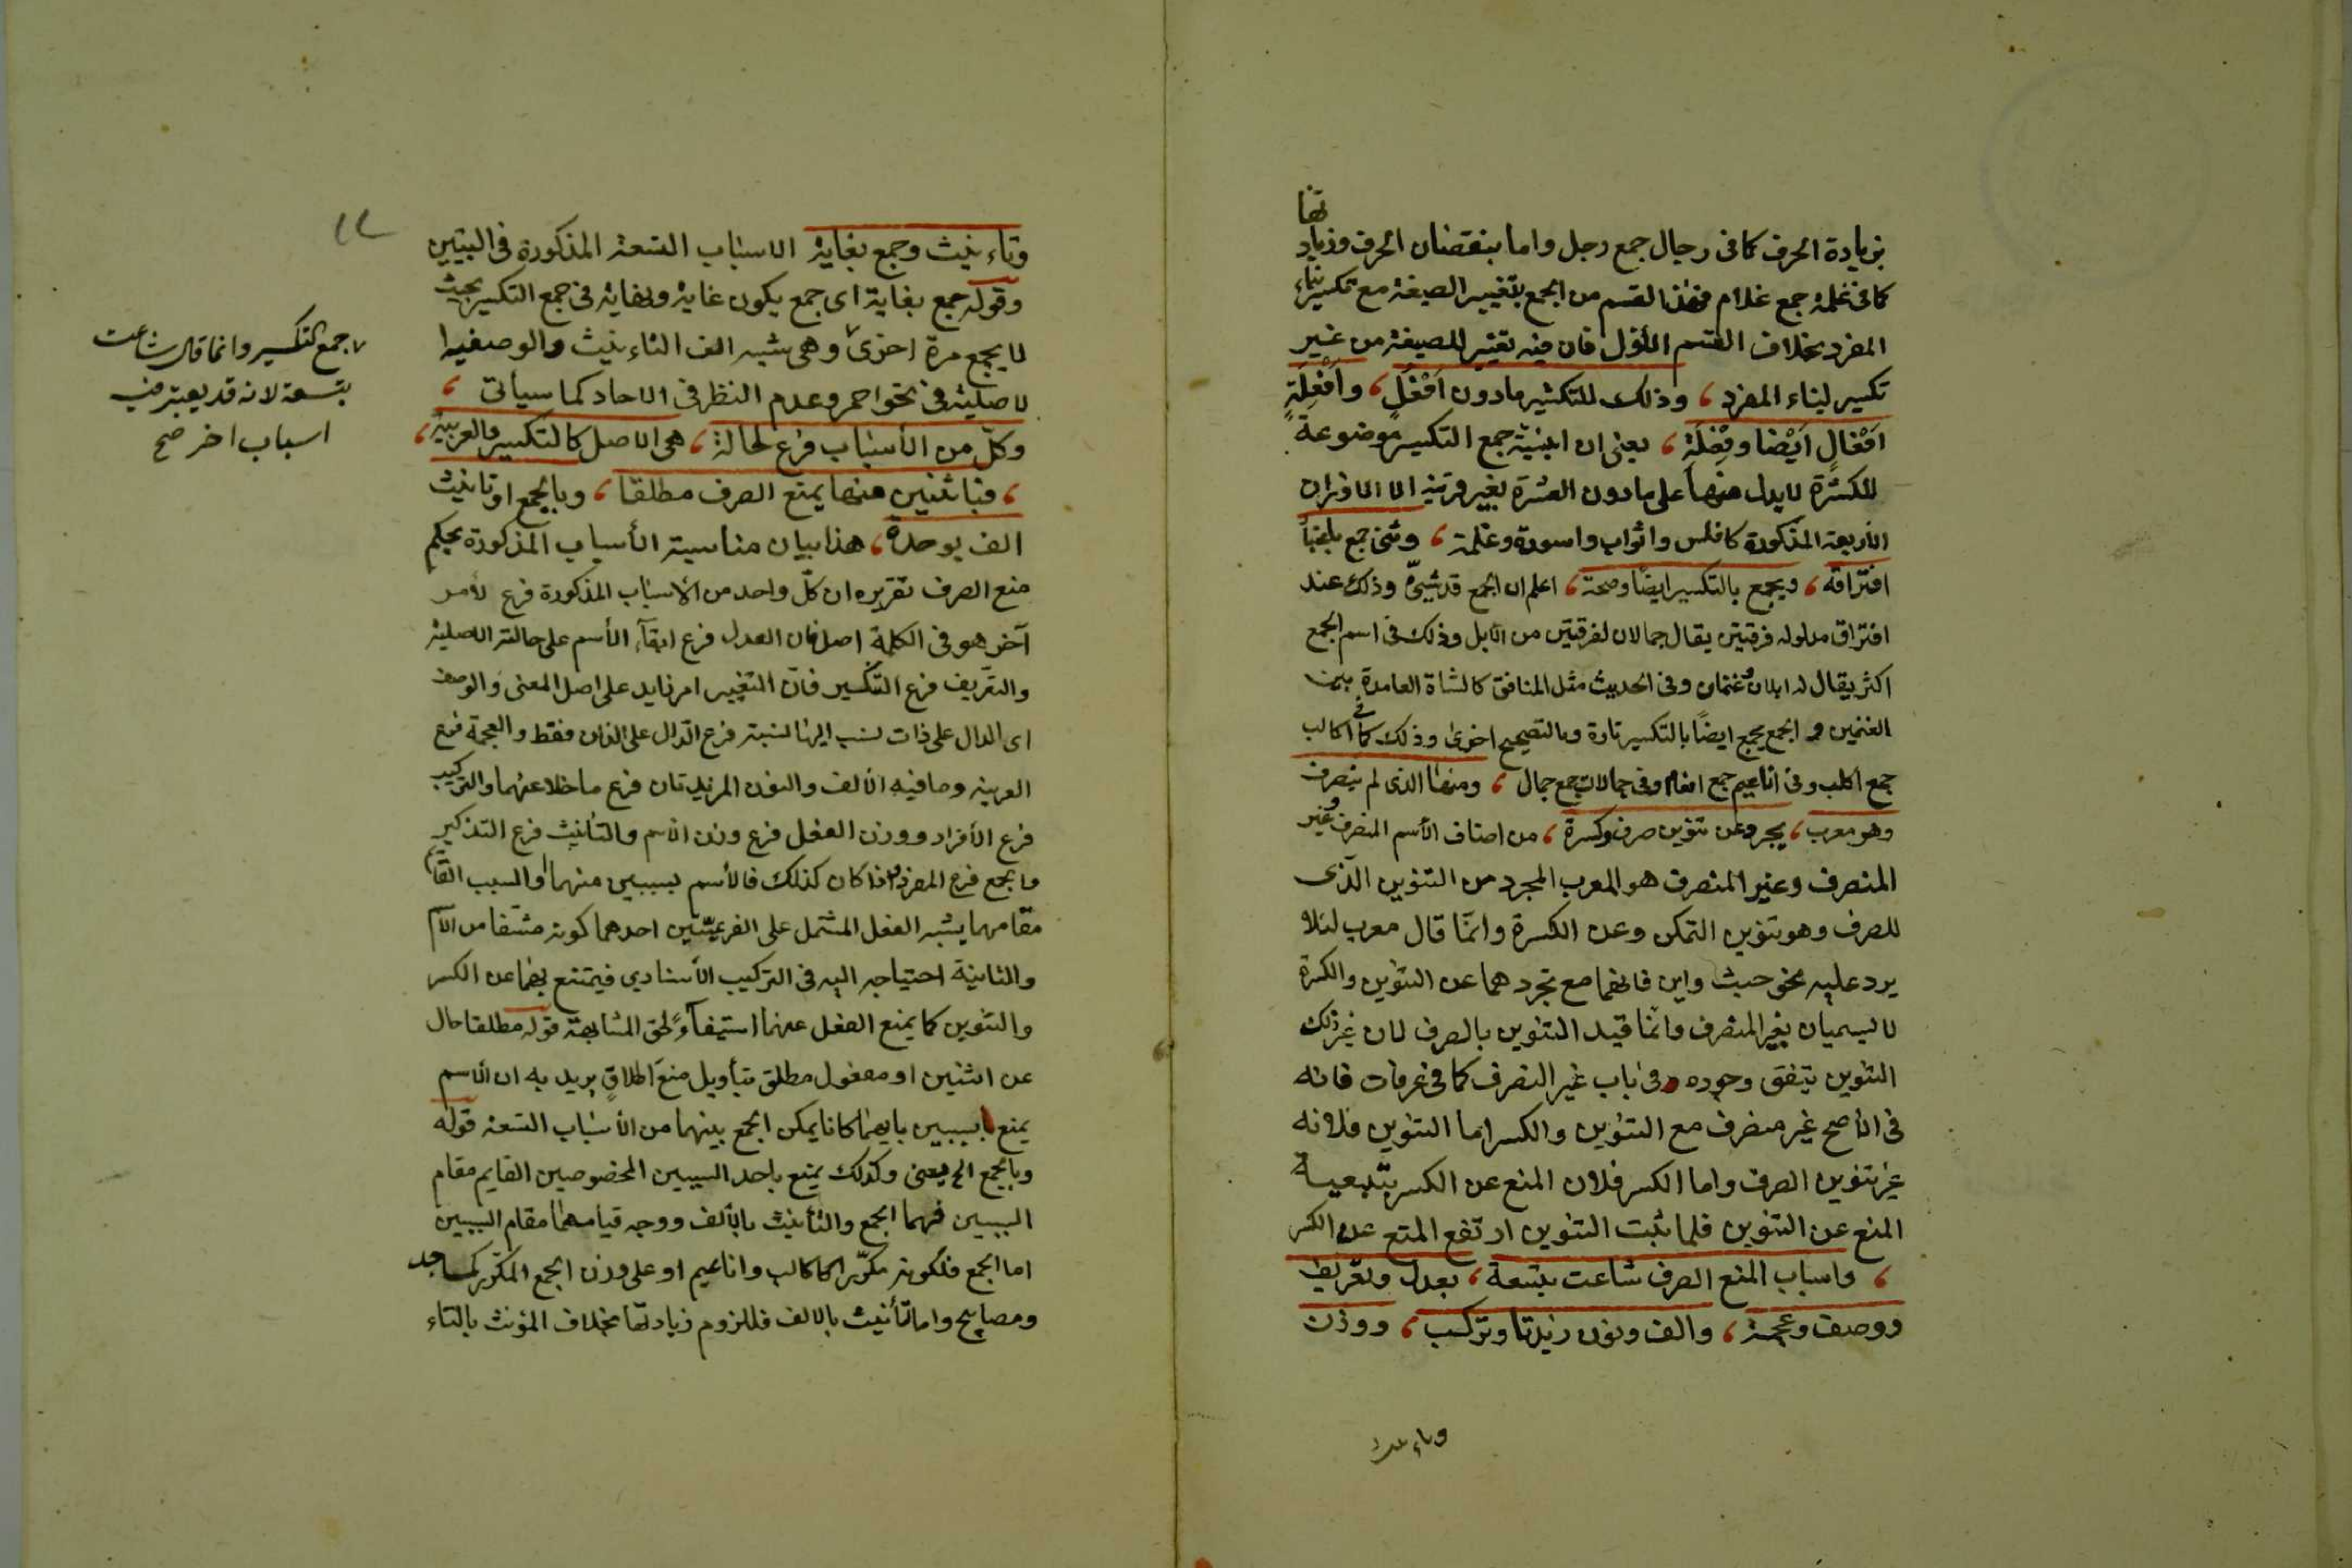 بزيادة الحرف كما فى رجال جمع رجل واما بنقصان الحرف وزيادتها
كما فى غلمة جمع غلام فهذا القسم من الجمع بتغيير الصيغة مع تكسير بناء
المفرد بخلاف القسم الأول فان فيه تغيير للصيغة من غير
تكسير لبناء المفرد ، وذلك للتكثير مادون اَفْعُلٍ ، واَفْعِلَةٍ
اَفْعَالٍ اَيْضا وفِعْلَةِ ، يعنى ان ابنية جمع التكسير موضوعة
للكثرة لا يدل منها على مادون العشرة بغير قرينة الا الاوزان
الأربعة المذكورة كافلس واثواب واسورة وغلمة ، وثنى جمع
افتراقه ، ويجمع بالتكسير ايضًا وصحة ، اعلم ان الجمع قد يثنىّ وذلك عند
افتراق مدلوله فرقتين يقال جمالان لفرقتين من الابل وذلك فى اسم الجمع
اكثر يقال له ابلان وغنمان وفى الحديث مثل المنافق كالشاة العامدة بين
الغنمين و الجمع يجمع ايضًا بالتكسير تارة وبالتصحيح اخرى وذلك كما فى اكالب
جمع اكلب وفى اناعيم جمع انعام وفى جمالات جمع جمال ، ومنها الذى لم ينصرف
وهو معرب ، يجر وعن تنوين صرف وكسرة ، من اصناف الأسم المنصرف وغير
المنصرف وغير المنصرف هو المعرب المجرد من التنوين الذى
للصرف وهو تنوين التمكن وعن الكسرة وانما قال معرب لئلا
يرد عليه نحو حيث واين فانهما مع تجردهما عن التنوين والكسرة
لا يسميان بغير المنصرف وانما قيد التنوين بالصرف لان غير ذلك
التنوين يتفق وجوده فى باب غير المنصرف كما فى عرفات فانه
فى الأصح غير منصرف مع التنوين والكسر اما التنوين فلانه
غير تنوين الصرف واما الكسر فلان المنع عن الكسر بتبعية
المنع عن التنوين فلما ثبت التنوين ارتفع المنع عن الكسر
، واسباب المنع الصرف شاعت بتسعة ، بعدل وتعريف
ووصف وعجمة ، والف ونون زيدتا وتركيب ، ووزن
وتاء
وتاءنيث وجمع بغاية الاسباب التسعة المذكورة فى البيتين
وقوله جمع بغاية اى جمع يكون غاية ونهاية فى جمع التكسير بحيث
لا يجمع مرة اخرى وهى شبه الف التاءنيث والوصفية ا
لاصلية فى نحو احمر وعدم النظر فى الاحاد كما سيأتى ،
وكلّ من الأسباب فرع لحالة ، هى الاصل كالتكسير والعربية ،
، فباثنين منها يمنع الصرف مطلقا ، وبالجمع او تانيث
الف بوحدة ، هذا بيان مناسبة الأسباب المذكورة بحكم
منع الصرف تقريره ان كلّ واحد من الأسباب المذكورة فرع لأمر
آخر هو فى الكلمة اصل فان العدل فرع ابقآء الأسم على حالته الاصلية
والتعريف فرع التنكير فان التغيير امر زايد على اصل المعنى والوصف
اى الدال على ذات نسب اليها نسبة فرع الدّال على الذات فقط والعجمة فرع
العربية وما فيه الألف والنون المزيدتان فرع ما خلا عنهما والتركيب
فرع الأفراد ووزن الفعل فرع وزن الاسم والتأنيث فرع التذكير
والجمع فرع المفرد واذا كان كذلك فالأسم بسببين منهما او السبب القائم
مقامهما يشبه الفعل المشتمل على الفرعيّتين احدهما كونه مشتقا من الأسم
والثانية احتياجه اليه فى التركيب الأسنادي فيمتنع بهما عن الكسر
والتنوين كما يمنع الفعل عنهما استيفآءً لحق المشابهة قوله مطلقا حال
عن اثنين او مفعول مطلق بتأويل منعَ اطلاقٍ يريد به ان الأسم
يمنع بسببين بايهما كانا يمكن الجمع بينهما من الأسباب التسعة قوله
وبالجمع الخ يعنى وكذلك يمنع باحد السببين المخصوصين القايم مقام
السببين فهما الجمع والتأنيث بالألف ووجه قيامهما مقام السببين
اما الجمع فلكونه مكرّرا كاكالب واناعيم او على وزن الجمع المكرّر كمساجد
ومصابيح واما التأنيث بالالف فللزوم زيادتها بخلاف المؤنث بالتاء
١٢
جمع التكسير وانما قال شاعت
بتسعة لانه قد يعتبر فيه
اسباب اخر صح